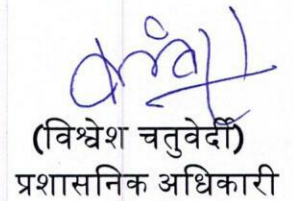 (विश्वेश चतुर्वेदी)
प्रशासनिक अधिकारी